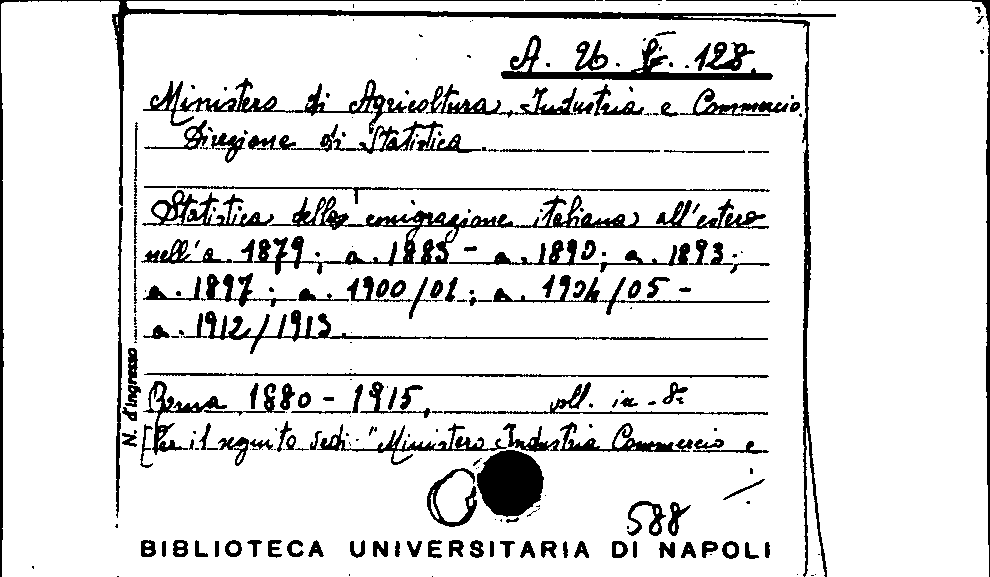 A. Ub. F. 128.
Ministero di Agricoltura, Industria e Commercio.
Direzione di Statistica.
Statistica della emigrazione italiana all'estero
nell'a. 1879; a. 1883 - a. 1890; a. 1893;
a. 1897; a. 1900/01; a. 1904/05 -
a. 1912/1913.
Roma 1880 - 1915, voll. in - 8º
[Per il seguito vedi: "Ministero Industria Commercio e
N. d'ingresso
588
BIBLIOTECA UNIVERSITARIA DI NAPOLI